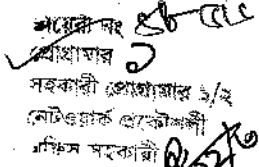 ডায়েরী নং
প্রোগ্রামার
সহকারী প্রোগ্রামার ১/২
নেটওয়ার্ক প্রকৌশলী
অফিস সহকারী